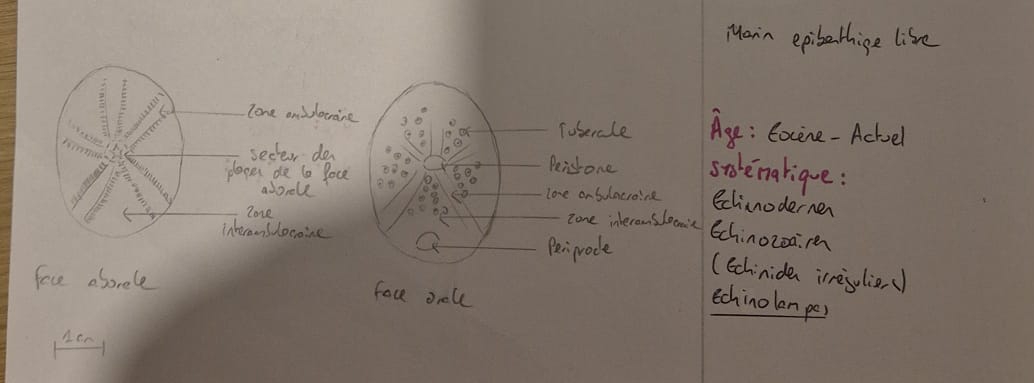 zone ambulacraire
secteur des
plaques de la face
aborale
zone
interambulacraire
Face aborale
1 cm
Tubercule
Peristome
zone ambulacraire
zone interambulacraire
Periprocte
Face orale
Marin epibenthique libre
Âge : Eocène - Actuel
Systématique :
Echinodermes
Echinozoaires
(Echinides irréguliers)
Echinolampas